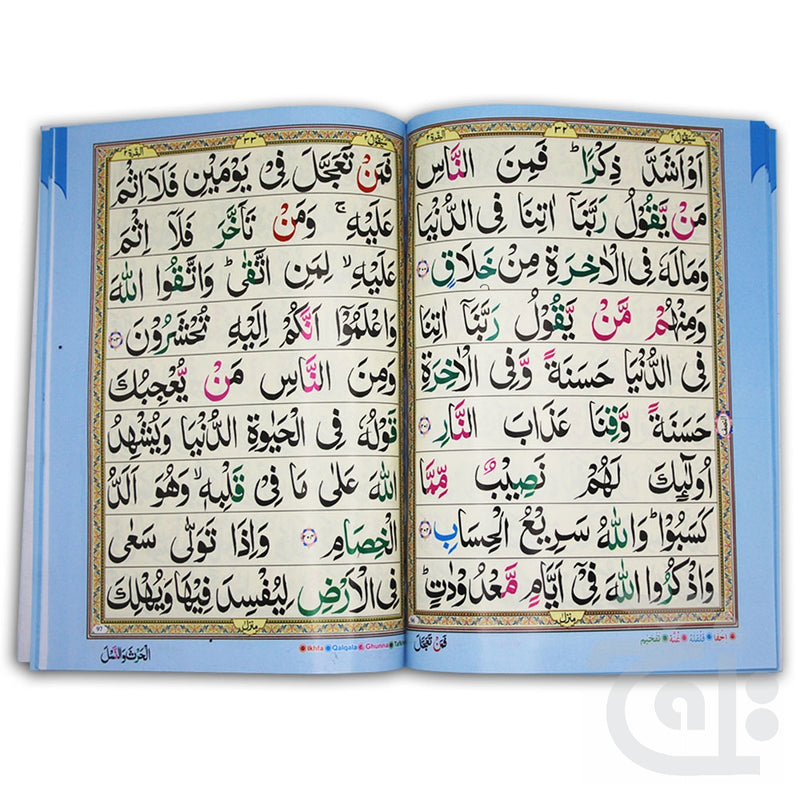 سيقول ٢
٣٢
البقرة ٢
اَوْ اَشَدَّ ذِكْرًا ؕ فَمِنَ النَّاسِ
مَنْ يَّقُوْلُ رَبَّنَاۤ اٰتِنَا فِى الدُّنْيَا
وَمَا لَهٗ فِى الْاٰخِرَةِ مِنْ خَلَاقٍ ۝٢٠٠
وَمِنْهُمْ مَّنْ يَّقُوْلُ رَبَّنَاۤ اٰتِنَا
فِى الدُّنْيَا حَسَنَةً وَّفِى الْاٰخِرَةِ
حَسَنَةً وَّقِنَا عَذَابَ النَّارِ ۝٢٠١
اُولٰٓئِكَ لَهُمْ نَصِيْبٌ مِّمَّا
كَسَبُوْا ؕ وَاللّٰهُ سَرِيْعُ الْحِسَابِ ۝٢٠٢
وَاذْكُرُوا اللّٰهَ فِىْۤ اَيَّامٍ مَّعْدُوْدٰتٍ ؕ
منزل
اخفا قلقلة غنّه تفخيم
فَمَنْ تَعَجَّلَ
سيقول ٢
٣٣
البقرة ٢
فَمَنْ تَعَجَّلَ فِىْ يَوْمَيْنِ فَلَاۤ اِثْمَ
عَلَيْهِ ۚ وَمَنْ تَاَخَّرَ فَلَاۤ اِثْمَ
عَلَيْهِ ۙ لِمَنِ اتَّقٰى ؕ وَاتَّقُوا اللّٰهَ
وَاعْلَمُوْۤا اَنَّكُمْ اِلَيْهِ تُحْشَرُوْنَ ۝٢٠٣
وَمِنَ النَّاسِ مَنْ يُّعْجِبُكَ
قَوْلُهٗ فِى الْحَيٰوةِ الدُّنْيَا وَيُشْهِدُ
اللّٰهَ عَلٰى مَا فِىْ قَلْبِهٖ ۙ وَهُوَ اَلَدُّ
الْخِصَامِ ۝٢٠٤ وَاِذَا تَوَلّٰى سَعٰى
فِى الْاَرْضِ لِيُفْسِدَ فِيْهَا وَيُهْلِكَ
منزل
Ikhfa Qalqala Ghunna
الْحَرْثَ وَالنَّسْلَ